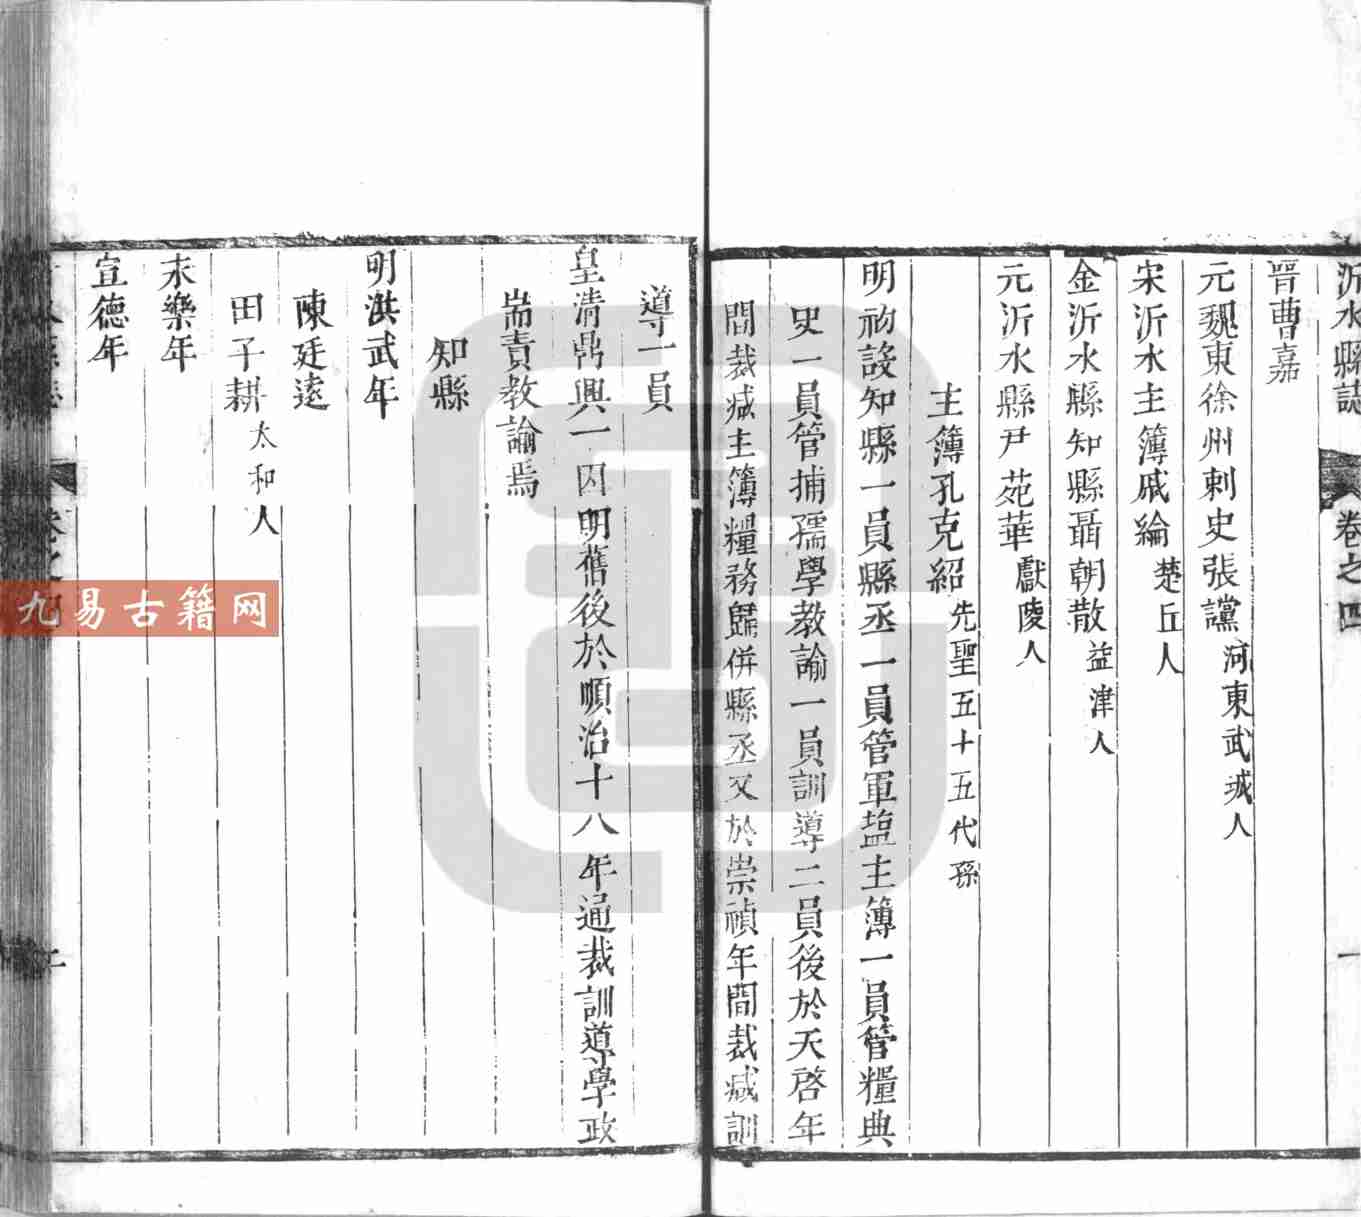 沂水縣誌
卷之四
一
晉曹嘉
元魏東徐州刺史張讜河東武城人
宋沂水主簿戚綸楚丘人
金沂水縣知縣聶朝散益津人
元沂水縣尹苑華獻陵人
主簿孔克紹先聖五十五代孫
明初設知縣一員縣丞一員管軍塩主簿一員管糧典
史一員管捕孺學教諭一員訓導二員後於天啓年
間裁减主簿糧務歸併縣丞又於崇禎年間裁减訓
導一員
皇清鼎興一因明舊後於順治十八年通裁訓導學政
耑責教諭焉
知縣
明洪武年
陳廷逵
田子耕太和人
永樂年
宣德年
二
九易古籍网